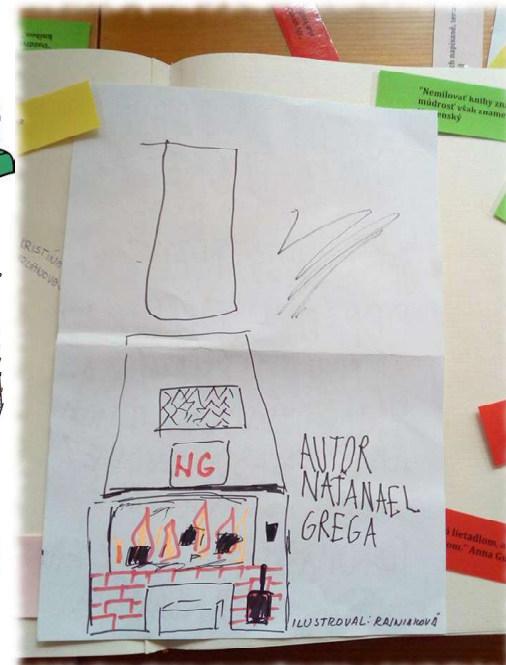 "Nemilovať knihy zna
múdrosť však zname
enský
NG
AUTOR
NATANAEL
GREGA
ILUSTROVAL: RAJNIAKOVÁ
lietadlom, a
om." Anna Gu